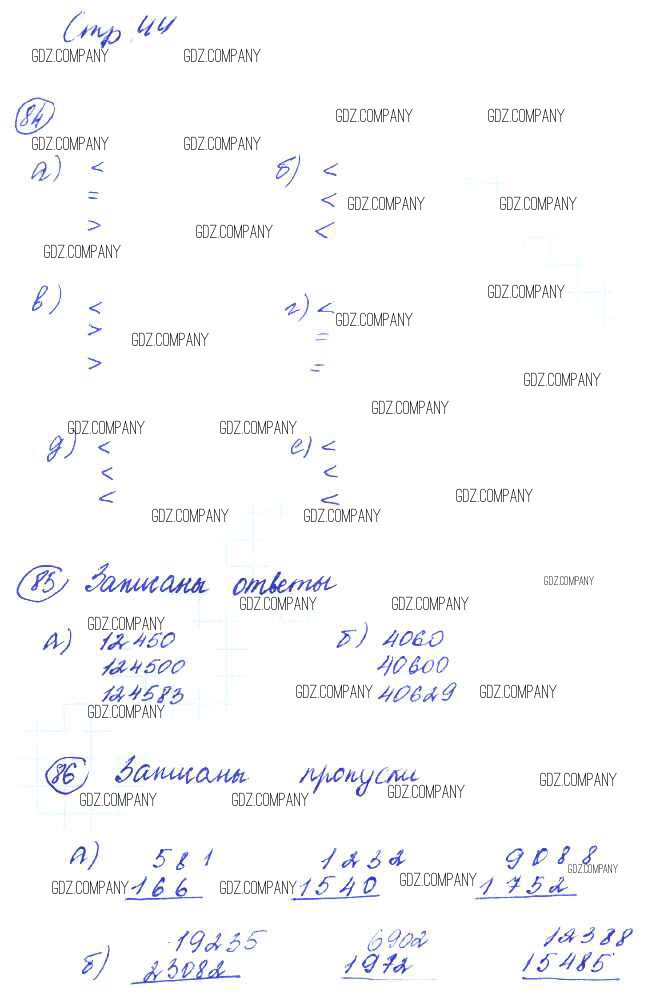 Стр. 44
GDZ.COMPANY GDZ.COMPANY
GDZ.COMPANY GDZ.COMPANY
84
GDZ.COMPANY GDZ.COMPANY
а) < б) <
= < GDZ.COMPANY GDZ.COMPANY
> GDZ.COMPANY <
GDZ.COMPANY
GDZ.COMPANY
в) < г) <
> GDZ.COMPANY
GDZ.COMPANY =
> =
GDZ.COMPANY
GDZ.COMPANY
GDZ.COMPANY GDZ.COMPANY
д) < е) <
< <
< < GDZ.COMPANY
GDZ.COMPANY GDZ.COMPANY
85 Записаны ответы GDZ.COMPANY
GDZ.COMPANY GDZ.COMPANY
GDZ.COMPANY
а) 12450 б) 4060
124500 40600
124583 GDZ.COMPANY 40629 GDZ.COMPANY
GDZ.COMPANY
86 Записаны пропуски GDZ.COMPANY
GDZ.COMPANY GDZ.COMPANY GDZ.COMPANY
а) 581 1232 9088
GDZ.COMPANY
GDZ.COMPANY 166 GDZ.COMPANY 1540 GDZ.COMPANY 1752
19235 6902 12388
б) 23082 1972 15485